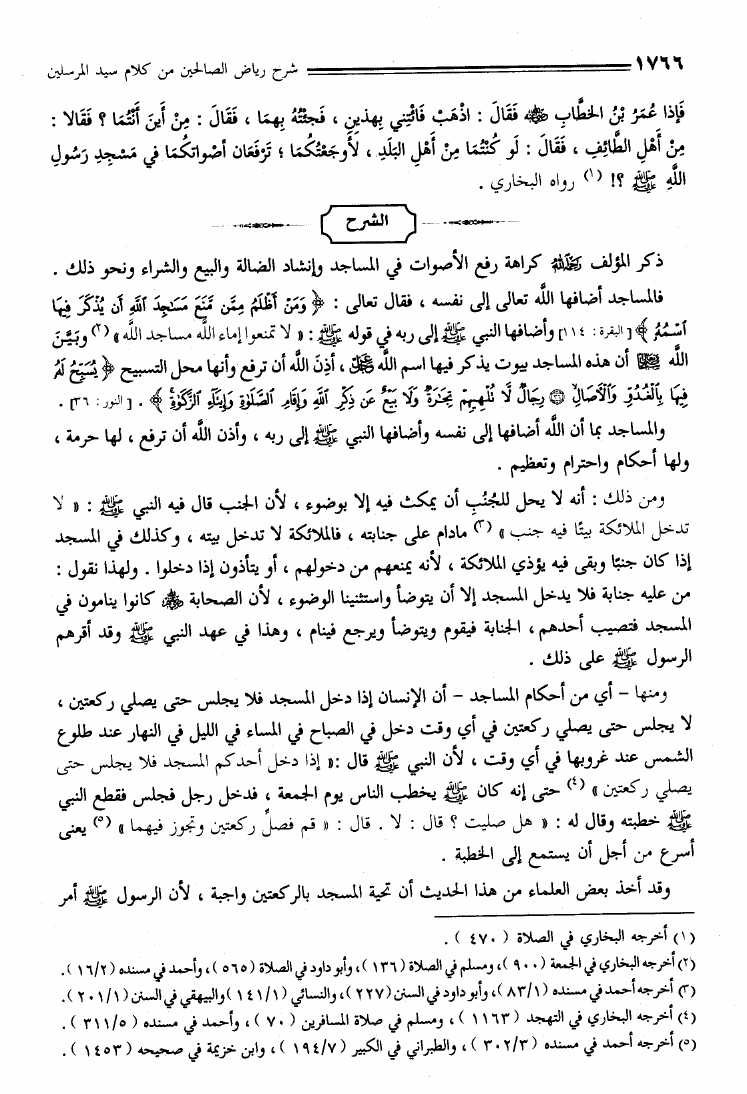 ١٧٦٦ شرح رياض الصالحين من كلام سيد المرسلين
فَإِذا عُمَرُ بْنُ الخَطَّابِ رضي الله عنه فَقَالَ : اذْهَبْ فَائْتِنِي بِهذَينِ ، فَجِئْتُهُ بِهِمَا ، فَقَالَ : مِنْ أَينَ أَنْتُمَا ؟ فَقَالا :
مِنْ أَهْلِ الطَّائِفِ ، فَقَالَ : لَو كُنْتُمَا مِنْ أَهْلِ البَلَدِ ، لأَوجَعْتُكُمَا ؛ تَرْفَعَانِ أَصْواتَكُمَا في مَسْجِدِ رَسُولِ
اللَّهِ ﷺ ؟! (١) رواه البخاري .
الشرح
ذكر المؤلف رحمه الله كراهة رفع الأصوات في المساجد وإنشاد الضالة والبيع والشراء ونحو ذلك .
فالمساجد أضافها اللَّه تعالى إلى نفسه ، فقال تعالى : ﴿ وَمَنْ أَظْلَمُ مِمَّن مَّنَعَ مَسَٰجِدَ ٱللَّهِ أَن يُذْكَرَ فِيهَا
ٱسْمُهُۥ ﴾ [ البقرة : ١١٤] وأضافها النبي ﷺ إلى ربه في قوله ﷺ : « لا تمنعوا إماء اللَّه مساجد اللَّه » (٢) وبَيَّنَ
اللَّه ﷻ أن هذه المساجد بيوت يذكر فيها اسم اللَّه ﷻ ، أذِنَ اللَّه أن ترفع وأنها محل التسبيح ﴿ يُسَبِّحُ لَهُۥ
فِيهَا بِٱلْغُدُوِّ وَٱلْأَصَالِ ۝ رِجَالٌ لَّا نُلْهِيهِمْ تِجَٰرَةٌ وَلَا بَيْعٌ عَن ذِكْرِ ٱللَّهِ وَإِقَامِ ٱلصَّلَوٰةِ وَإِينَآءِ ٱلزَّكَوٰةِ ﴾ . [ النور : ٣٦] .
والمساجد بما أن اللَّه أضافها إلى نفسه وأضافها النبي ﷺ إلى ربه ، وأذن اللَّه أن ترفع ، لها حرمة ،
ولها أحكام واحترام وتعظيم .
ومن ذلك : أنه لا يحل للجُنُبِ أن يمكث فيه إلا بوضوء ، لأن الجنب قال فيه النبي ﷺ : « لا
تدخل الملائكة بيتًا فيه جنب » (٣) مادام على جنابته ، فالملائكة لا تدخل بيته ، وكذلك في المسجد
إذا كان جنبًا وبقى فيه يؤذي الملائكة ، لأنه يمنعهم من دخولهم ، أو يتأذون إذا دخلوا . ولهذا نقول :
من عليه جنابة فلا يدخل المسجد إلا أن يتوضأ واستثنينا الوضوء ، لأن الصحابة رضي الله عنهم كانوا ينامون في
المسجد فتصيب أحدهم ، الجنابة فيقوم ويتوضأ ويرجع فينام ، وهذا في عهد النبي ﷺ وقد أقرهم
الرسول ﷺ على ذلك .
ومنها - أي من أحكام المساجد - أن الإنسان إذا دخل المسجد فلا يجلس حتى يصلي ركعتين ،
لا يجلس حتى يصلي ركعتين في أي وقت دخل في الصباح في المساء في الليل في النهار عند طلوع
الشمس عند غروبها في أي وقت ، لأن النبي ﷺ قال :« إذا دخل أحدكم المسجد فلا يجلس حتى
يصلي ركعتين » (٤) حتى إنه كان ﷺ يخطب الناس يوم الجمعة ، فدخل رجل فجلس فقطع النبي
ﷺ خطبته وقال له : « هل صليت ؟ قال : لا . قال : « قم فصلِّ ركعتين وتجوز فيهما » (٥) يعنى
أسرع من أجل أن يستمع إلى الخطبة .
وقد أخذ بعض العلماء من هذا الحديث أن تحية المسجد بالركعتين واجبة ، لأن الرسول ﷺ أمر
(١) أخرجه البخاري في الصلاة ( ٤٧٠ ) .
(٢) أخرجه البخاري في الجمعة ( ٩٠٠ )، ومسلم في الصلاة (١٣٦ )، وأبو داود في الصلاة (٥٦٥ )، وأحمد في مسنده ( ١٦/٢ ).
(٣) أخرجه أحمد في مسنده ( ٨٣/١ )، وأبو داود في السنن (٢٢٧ )، والنسائي ( ١٤١/١ )والبيهقي في السنن (٢٠١/١ ).
(٤) أخرجه البخاري في التهجد ( ١١٦٣ ) ، ومسلم في صلاة المسافرين ( ٧٠ ) ، وأحمد في مسنده ( ٣١١/٥ ) .
(٥) أخرجه أحمد في مسنده ( ٣٠٢/٣ ) ، والطبراني في الكبير ( ١٩٤/٧ ) ، وابن خزيمة في صحيحه ( ١٤٥٣ ) .